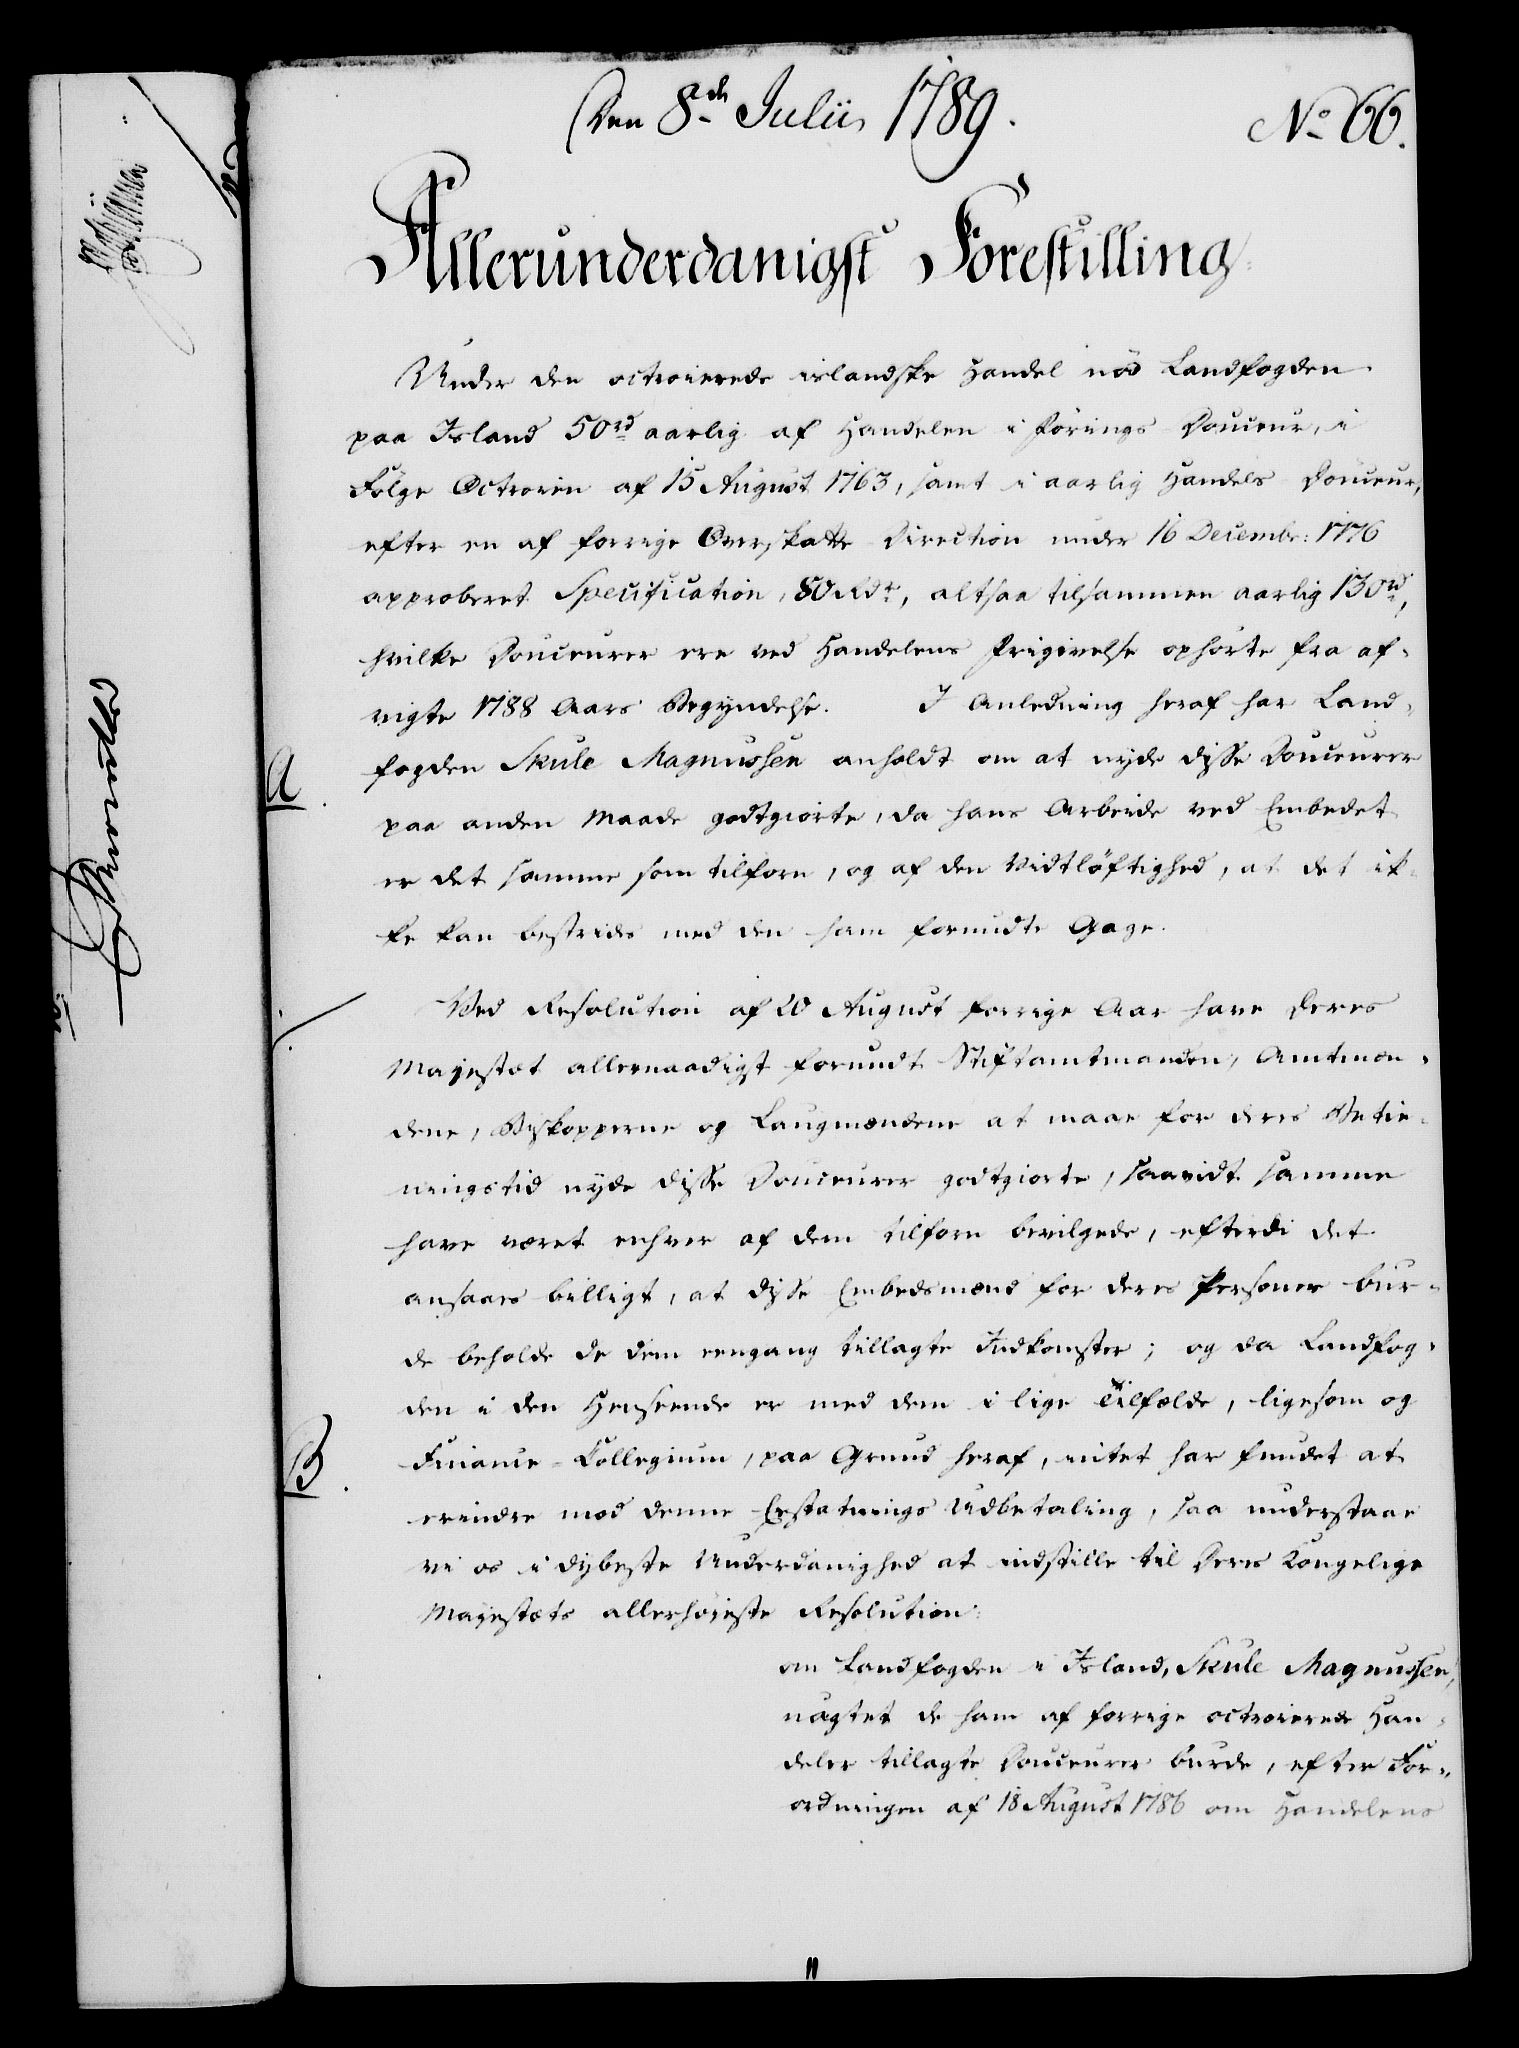 Den 8de Julii 1789.
No 66.
Allerunderdanigst Forestilling
Under den octroierede islandske Handel nöd Landfogden
paa Island 50rd aarlig af Handelen i Förings Douceur, i
Fölge Octroien af 15 August 1763, samt i aarlig Handels Douceur,
efter en af forrige Overskatte Direction under 16 Decembr: 1776
approberet Specification, 80 Rdr, altsaa tilsammen aarlig 130rd,
hvilke Douceurer ere ved Handelens Frigivelse ophörte fra af-
vigte 1788 Aars Begyndelse. I Anledning heraf har Land-
A.
fogden Skule Magnussen anholdt om at nyde disse Douceurer
paa anden Maade godtgiorte, da hans Arbeide ved Embedet
er det samme som tilforn, og af den Vidtlöftighed, at det ik-
ke kan bestrides med den ham forundte Gage.
Ved Resolution af 20 August forrige Aar have Deres
Majestæt allernaadigst forundt Stiftamtmanden, Amtmæn-
dene, Biskopperne og Laugmændene at maae for deres Betie-
ningstid nyde disse Douceurer godtgiorte, saavidt samme
have været enhver af dem tilforn bevilgede, efterdi det
ansaaes billigt, at disse Embedsmænd for deres Personer bur-
de beholde de dem eengang tillagte Indkomster; og da Landfog-
den i den Henseende er med dem i lige Tilfælde, ligesom og
B.
Finance-Collegium, paa Grund heraf, intet har fundet at
erindre mod denne Erstatnings Udbetaling, saa understaae
vi os i dybeste Underdanighed at indstille til Deres Kongelige
Majestæts allerhöieste Resolution:
om Landfogden i Island, Skule Magnussen,
uagtet de ham af forrige octroierede Han-
deler tillagte Douceurer burde, efter For-
ordningen af 18 August 1786 om Handelens
11